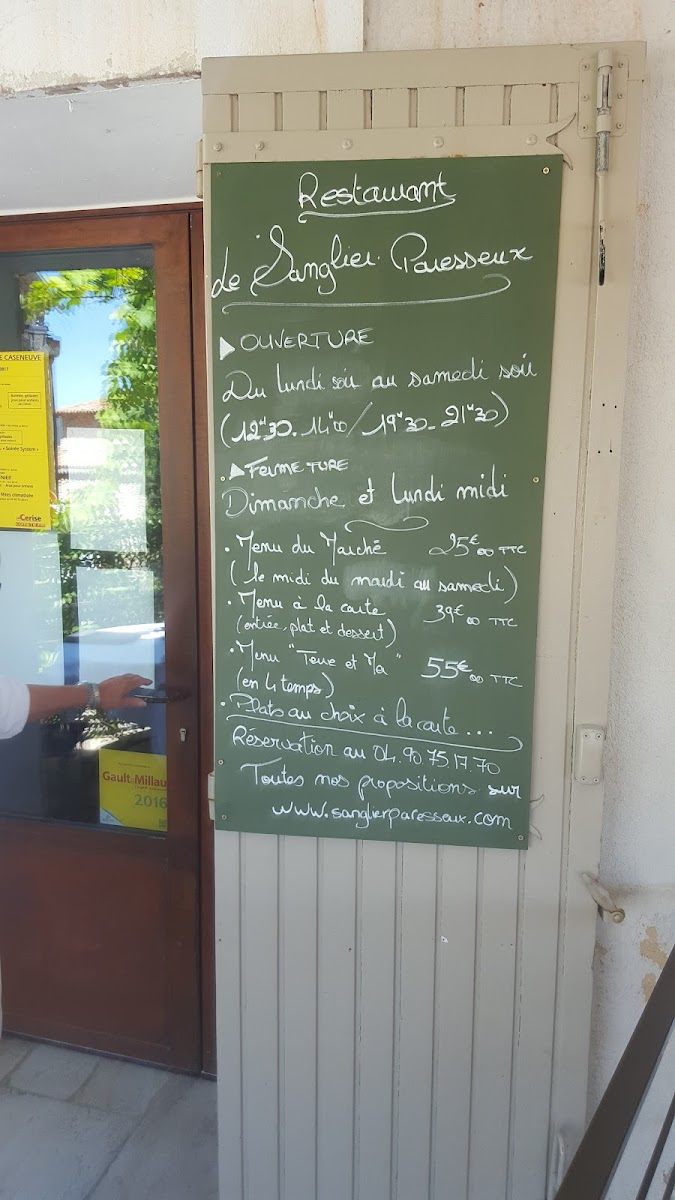 Restaurant
Le Sanglier Paresseux
OUVERTURE
Du lundi soir au samedi soir
(12H30-14H00/19H30-21H30)
FERMETURE
Dimanche et lundi midi
• Menu du Marché 25€00 TTC
(le midi du mardi au samedi)
• Menu à la carte 39€00 TTC
(entrée, plat et dessert)
• Menu "Terre et Mer" 55€00 TTC
(en 4 temps)
• Plats au choix à la carte...
Réservation au 04.90.75.17.70
Toutes nos propositions sur
www.sanglierparesseux.com
E CASENEUVE
Cerise
Gault&Millau
2016